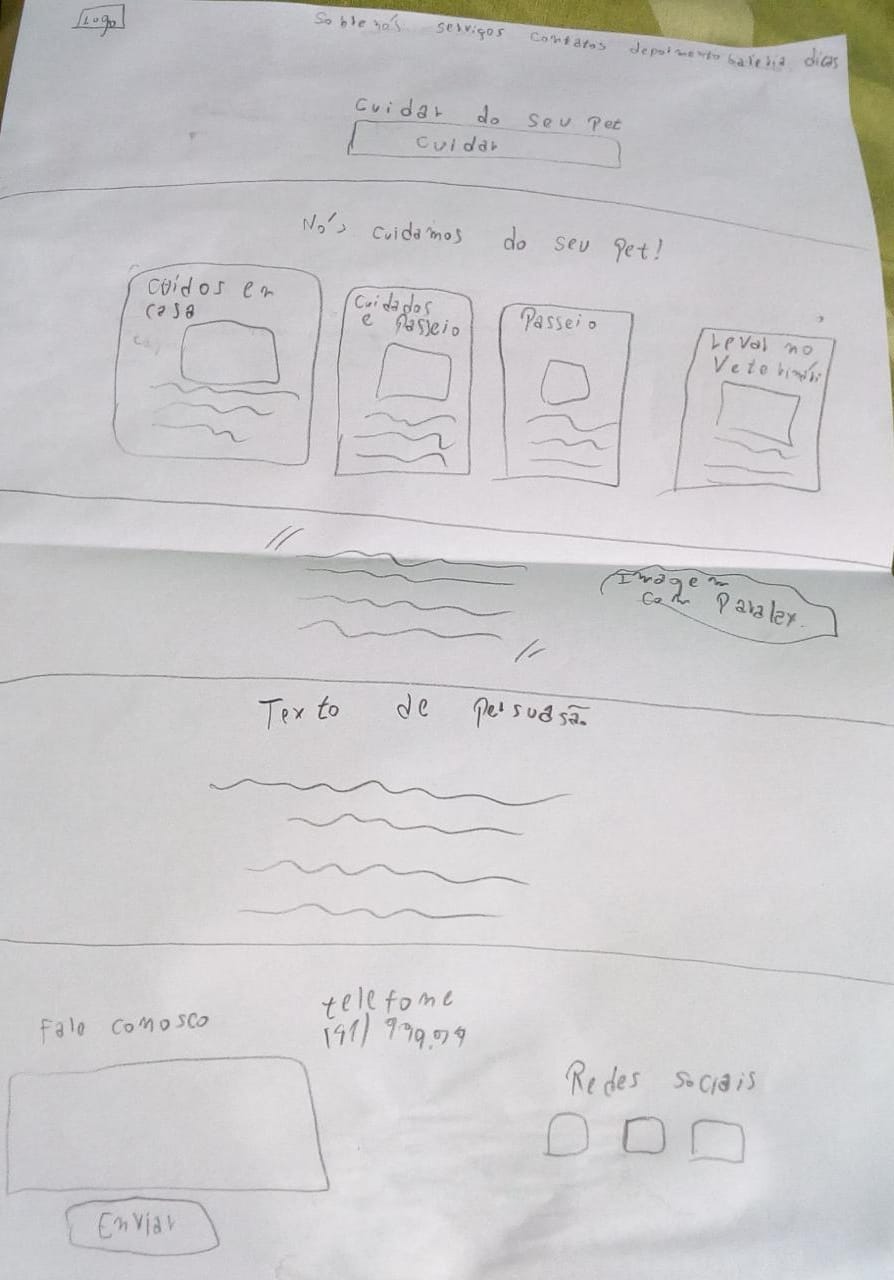 Logo
Sobre nós serviços contatos depoimento galeria dicas
Cuidar do seu Pet
Cuidar
Nós cuidamos do seu Pet!
Cuidos em
casa
Cuidados
e Passeio
Passeio
Levar no
//
Imagem
com Paralex.
//
Texto de Persuasão
Fale conosco
telefone
Redes sociais
Enviar